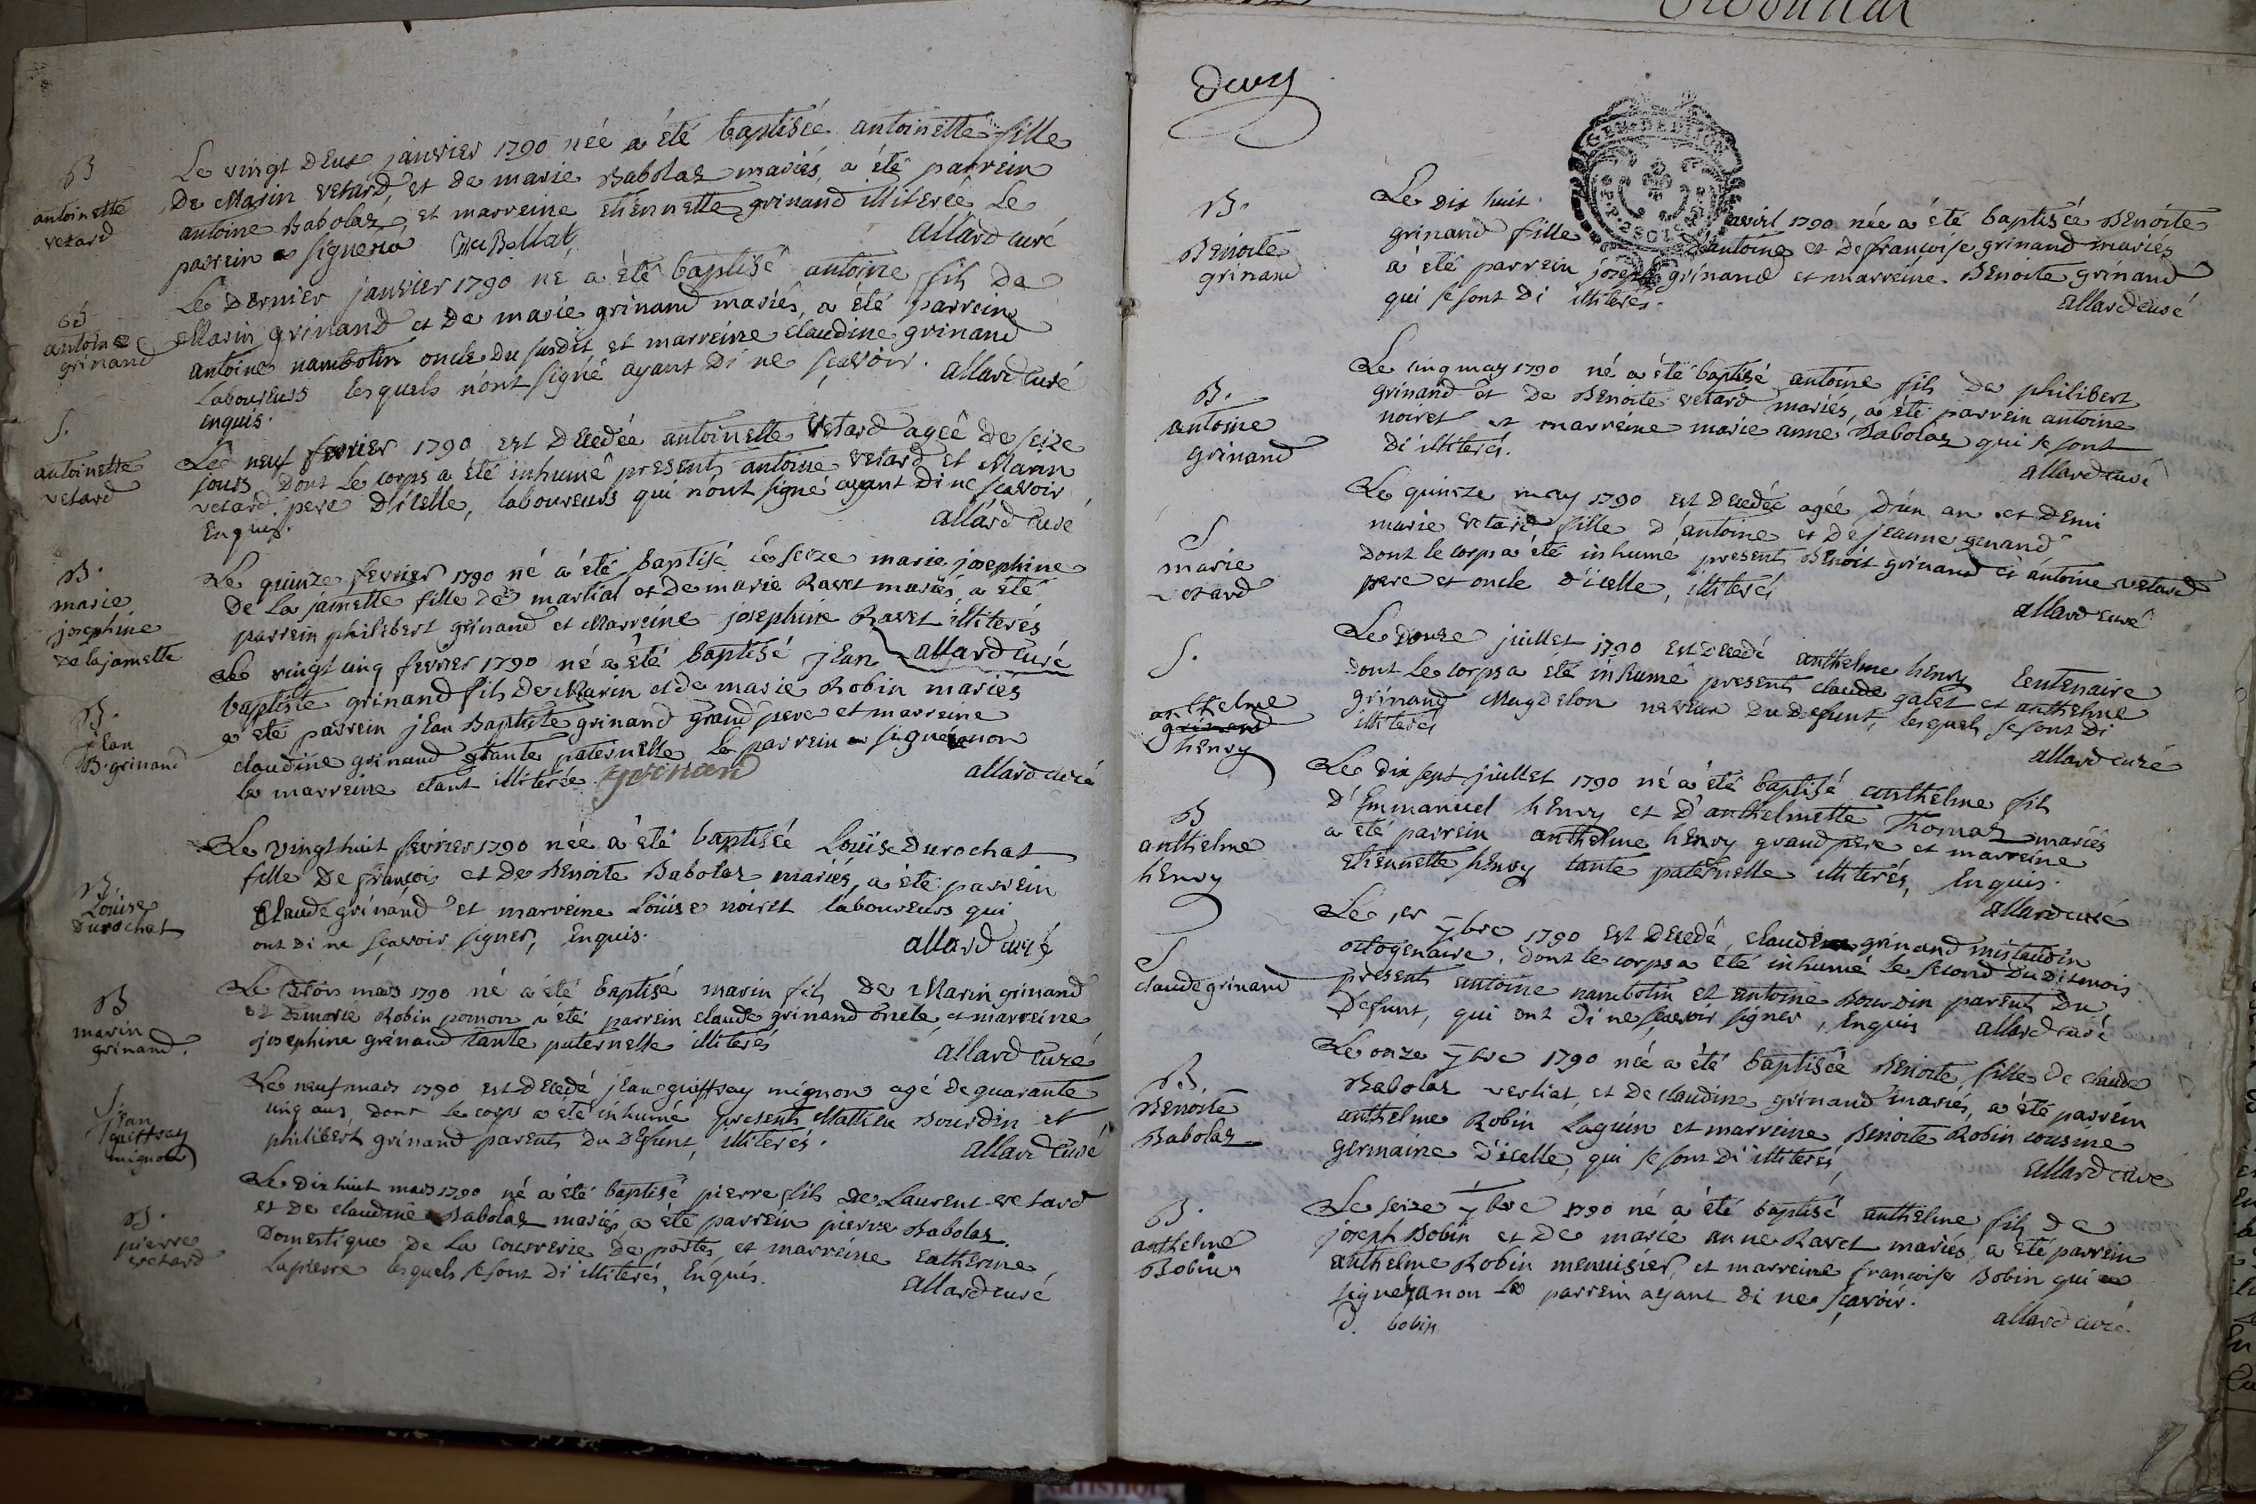 B
antoinette
vetard
Le vingt deux janvier 1790 née a été baptisée antoinette fille
de Marin vetard et de marie Babolaz mariés, a été parrein
antoine Babolaz, et marreine etiennette grinand illiterée Le
parrein a signera
allard curé
antoine
grinand
Le dernier janvier 1790 né a été baptisé antoine fils de
Marin grinand et de marie grinand mariés, a été parrein
antoine nambotin oncle du susdit et marreine claudine grinand
Laboureurs lesquels n'ont signé ayant di ne sçavoir.
enquis.
allard curé
S.
antoinette
vetard
Le neuf fevrier 1790 est decedée antoinette vetard ageé de seize
jours dont le corps a été inhumé presents antoine vetard et Marin
vetard pere d'icelle, laboureurs qui n'ont signé ayant di ne scavoir
Enquis.
allard curé
B.
marie
josephine
de lajamette
Le quinze fevrier 1790 né a été baptisé le seize marie josephine
de La jamette fille de martial et de marie Ravet mariés, a été
parrein philibert grinand et Marreine josephine Ravet illiterés
allard curé
B.
jean
B. grinand
Le vingt cinq fevrier 1790 né a été baptisé jean
baptiste grinand fils de Marin et de marie Robin mariés
a été parrein jean Baptiste grinand grand pere et marreine
claudine grinand tante paternelle le parrein a signe non
la marreine etant illiterée grinand
allard curé
B
Loüise
Durochat
Le vingt huit fevrier 1790 née a été baptisée Loüise Durochat
fille de françois et de Benoite Babolaz mariés, a été parrein
Claude grinand et marreine Loüise noiret laboureurs qui
ont di ne sçavoir signer, Enquis.
allard curé
B
marin
grinand.
Le trois mars 1790 né a été baptisé marin fils de Marin grinand
et de marie Robin pomon a été parrein claude grinand oncle, et marreine
josephine grinand tante paternelle illiterés
allard curé
S.
jean
guiffray
mignon
Le neuf mars 1790 est decedé jean guiffray mignon agé de quarante
cinq ans, dont le corps a été inhumé presents Mathieu Bourdin et
philibert grinand parents du defunt, illiterés.
allard curé
B.
pierre
vetard
Le dix huit mars 1790 né a été baptisé pierre fils de Laurent vetard
et de claudine Babolaz mariés, a été parrein pierre Babolaz
Domestique de La courrerie de portes, et marreine catherine
Lapierre lesquels se sont di illiterés, Enquis.
allard curé
B.
Benoite
grinand
Le dix huit avril 1790 née a été baptisée Benoite
grinand fille d'antoine et de françoise grinand mariés
a été parrein joseph grinand et marreine Benoite grinand
qui se sont di illiterés.
allard curé
B.
antoine
grinand
Le cinq may 1790 né a été baptisé antoine fils de philibert
grinand et de Benoite vetard mariés, a été parrein antoine
noiret et marreine marie anne Babolaz qui se sont
di illiterés.
allard curé
S
marie
vetard
Le quinze may 1790 est decedée agée d'un an et demi
marie vetard fille d'antoine et de jeanne grinand
dont le corps a été inhumé presents Benoit grinand et antoine vetard
pere et oncle d'icelle, illiterés
allard curé
S.
anthelme
grinand
henry
Le douze juillet 1790 est decedé anthelme henry Centenaire
dont le corps a été inhumé presents claude galet et anthelme
grinand Magdelon neveux du defunt, lesquels se sont di
illiterés
allard curé
B
anthelme
henry
Le dix sept juillet 1790 né a été baptisé anthelme fils
d'Emmanuel henry et d'anthelmette Thomaz mariés
a été parrein anthelme henry grand pere et marreine
etiennette henry tante paternelle illiterés, Enquis.
allard curé
S
claude grinand
Le 1er 7bre 1790 est decedé, claude grinand mistaudin
octogenaire, dont le corps a été inhumé le second du dit mois
presents antoine nambotin et antoine Bourdin parents du
Defunt, qui ont di ne sçavoir signer, Enquis
allard curé
B.
Benoite
Babolaz
Le onze 7bre 1790 née a été baptisée Benoite, fille de claude
Babolaz verliat, et de claudine grinand mariés, a été parrein
anthelme Robin Laguin et marreine Benoite Robin cousine
germaine d'icelle, qui se sont di illiterés
allard curé
B.
anthelme
Bobin
Le seize 7bre 1790 né a été baptisé anthelme fils de
joseph Bobin et de marie anne Ravet mariés, a été parrein
anthelme Robin menuisier, et marreine françoise Bobin qui a
signé, non le parrein ayant di ne sçavoir.
f. bobin
allard curé.